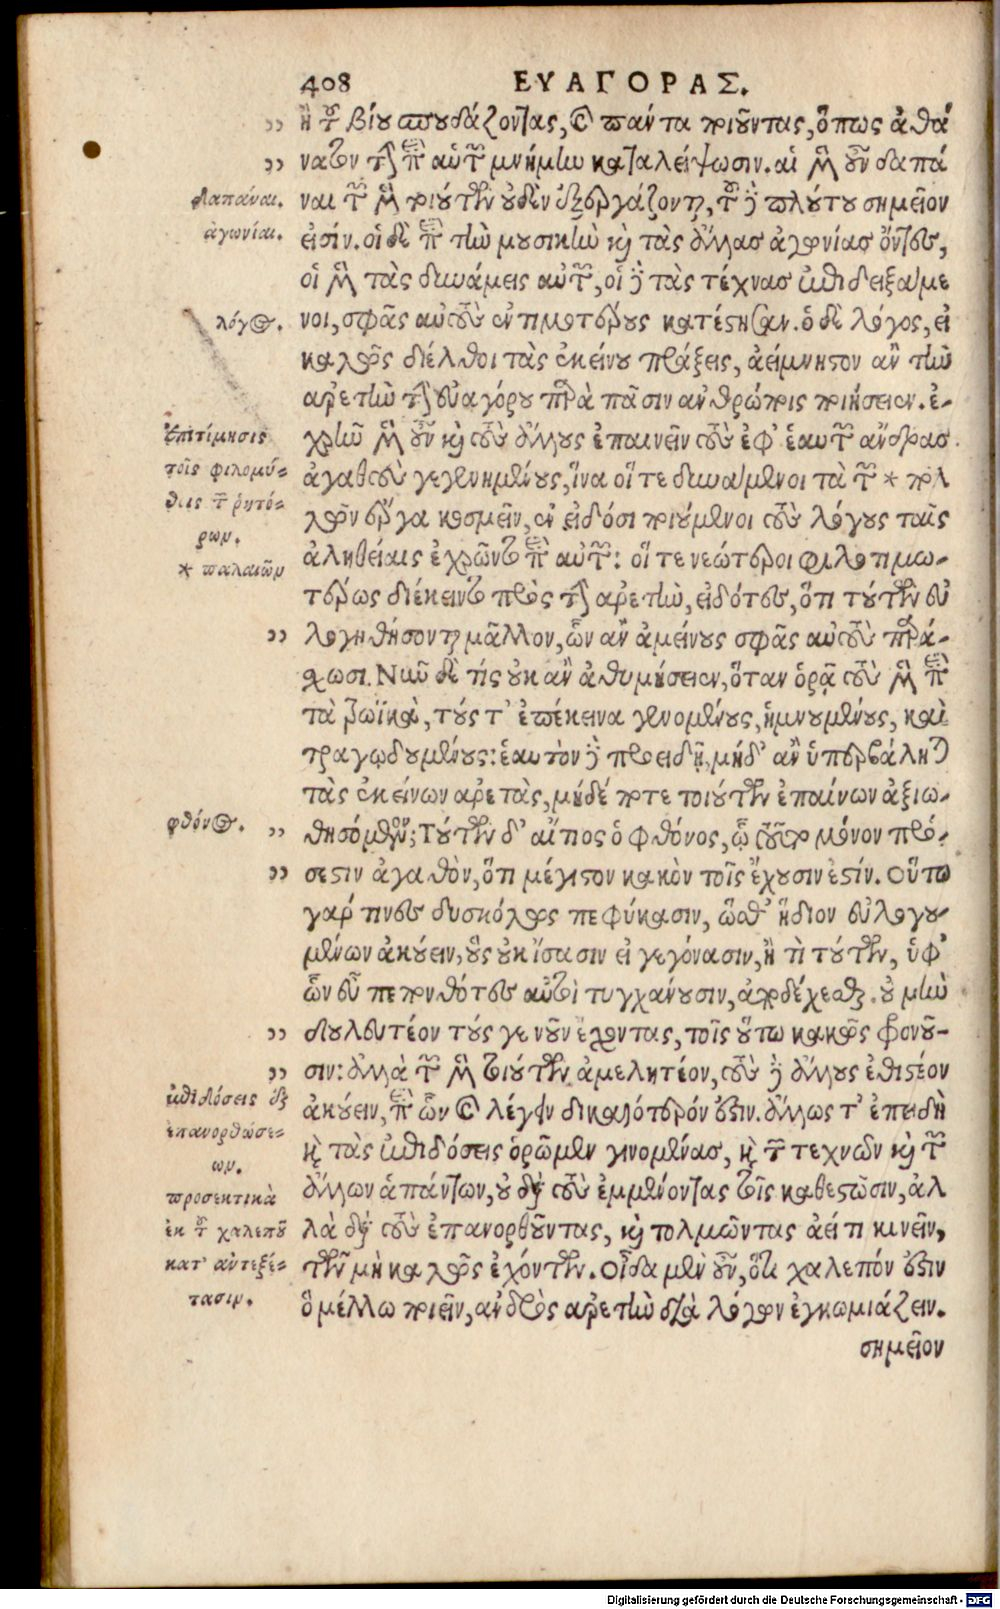 408 ΕΥΑΓΟΡΑΣ.
,, ἢ τοῦ βίου σπουδάζοντας, καὶ πάντα ποιοῦντας, ὅπως ἀθά
,, νατον τὴν περὶ αὑτῶν μνήμην καταλείψωσιν. αἱ μὲν οὖν δαπά
ναι τῶν μὲν τοιούτων οὐδὲν ἐξεργάζονται, τοῦ δὲ πλούτου σημεῖον
εἰσίν. οἱ δὲ περὶ τὴν μουσικὴν καὶ τὰς ἄλλας ἀγωνίας ὄντες,
οἱ μὲν τὰς δυνάμεις αὑτῶν, οἱ δὲ τὰς τέχνας ἐπιδειξάμε
νοι, σφᾶς αὐτοὺς ἐντιμοτέρους κατέστησαν. ὁ δὲ λόγος, εἰ
καλῶς διέλθοι τὰς ἐκείνου πράξεις, ἀείμνηστον ἂν τὴν
ἀρετὴν τὴν εὐαγόρου παρὰ πᾶσιν ἀνθρώποις ποιήσειεν. ἐ-
χρῆν μὲν οὖν καὶ τοὺς ἄλλους ἐπαινεῖν τοὺς ἐφ' ἑαυτῶν ἄνδρας
ἀγαθοὺς γεγενημένους, ἵνα οἵ τε δυνάμενοι τὰ τῶν * πολ
λῶν ἔργα κοσμεῖν, ἐν εἰδόσι ποιούμενοι τοὺς λόγους ταῖς
ἀληθείαις ἐχρῶντο περὶ αὐτῶν: οἵ τε νεώτεροι φιλοτιμω-
τέρως διέκειντο πρὸς τὴν ἀρετὴν, εἰδότες, ὅτι τούτων εὐ
,, λογηθήσονται μᾶλλον, ὧν ἂν ἀμείνους σφᾶς αὐτοὺς παρά-
σχωσι. Νῦν δὲ τίς οὐκ ἂν ἀθυμήσειεν, ὅταν ὁρᾷ τοὺς μὲν περὶ
τὰ τρωϊκὰ, τούς τ' ἐπέκεινα γενομένους, ὑμνουμένους, καὶ
τραγῳδουμένους: ἑαυτὸν δὲ προειδῇ, μήδ' ἂν ὑπερβάληται
τὰς ἐκείνων ἀρετὰς, μηδέ ποτε τοιούτων ἐπαίνων ἀξιω-
,, θησόμενον; Τούτων δ' αἴτιος ὁ φθόνος, ᾧ τοῦτο μόνον πρό-
,, σεστιν ἀγαθὸν, ὅτι μέγιστον κακὸν τοῖς ἔχουσιν ἐστίν. Οὕτω
γάρ τινες δυσκόλως πεφύκασιν, ὥσθ' ἥδιον εὐλογου-
μένων ἀκούειν, οὓς οὐκ ἴσασιν εἰ γεγόνασιν, ἢ τι τούτων, ὑφ'
ὧν εὖ πεπονθότες αὐτοὶ τυγχάνουσιν, ἀποδέχεσθαι. οὐ μὴν
,, δουλευτέον τούς γε νοῦν ἔχοντας, τοῖς οὕτω κακῶς φρονοῦ-
,, σιν: ἀλλὰ τῶν μὲν τοιούτων ἀμελητέον, τοὺς δὲ ἄλλους ἐθιστέον
ἀκούειν, περὶ ὧν καὶ λέγειν δικαιότερόν ἐστιν. ἄλλως τ' ἐπειδὴ
καὶ τὰς ἐπιδόσεις ὁρῶμεν γινομένας, καὶ τῶν τεχνῶν καὶ τῶν
ἄλλων ἁπάντων, οὐ διὰ τοὺς ἐμμένοντας τοῖς καθεστῶσιν, ἀλ
λὰ διὰ τοὺς ἐπανορθοῦντας, καὶ τολμῶντας ἀεί τι κινεῖν,
τῶν μὴ καλῶς ἐχόντων. Οἶδα μὲν οὖν, ὅτι χαλεπόν ἐστιν
ὃ μέλλω ποιεῖν, ἀνδρὸς ἀρετὴν διὰ λόγων ἐγκωμιάζειν.
σημεῖον
δαπάναι.
ἀγωνίαι.
λόγος.
Ἐπιτίμησις
τοῖς φιλομύ-
θοις τῶν ῥητό-
ρων.
* παλαιῶν
φθόνος.
ἐπιδόσεις ἐξ
ἐπανορθώσε-
ων.
προσεκτικὰ
ἐκ τοῦ χαλεποῦ
κατ' ἀντεξέ-
τασιν.
Digitalisierung gefördert durch die Deutsche Forschungsgemeinschaft - DFG